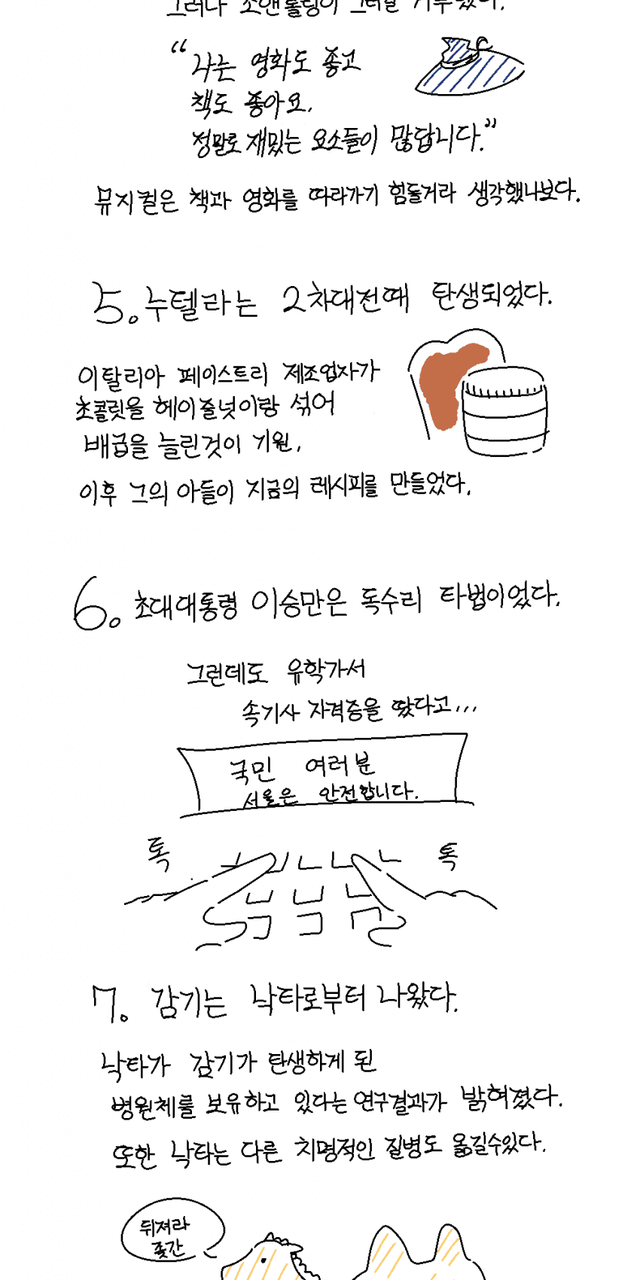 그러나 조앤롤링이 그러길 거부했다.
"나는 영화도 좋고
책도 좋아요.
정말로 재밌는 요소들이 많답니다."
뮤지컬은 책과 영화를 따라가기 힘들거라 생각했나보다.
5. 누텔라는 2차대전때 탄생되었다.
이탈리아 페이스트리 제조업자가
초콜릿을 헤이즐넛이랑 섞어
배급을 늘린것이 기원.
이후 그의 아들이 지금의 레시피를 만들었다.
6. 초대대통령 이승만은 독수리 타법이었다.
그런데도 유학가서
속기사 자격증을 땄다고...
국민 여러분
서울은 안전합니다.
톡
톡
7. 감기는 낙타로부터 나왔다.
낙타가 감기가 탄생하게 된
병원체를 보유하고 있다는 연구결과가 밝혀졌다.
또한 낙타는 다른 치명적인 질병도 옮길수있다.
뒤져라
좆간